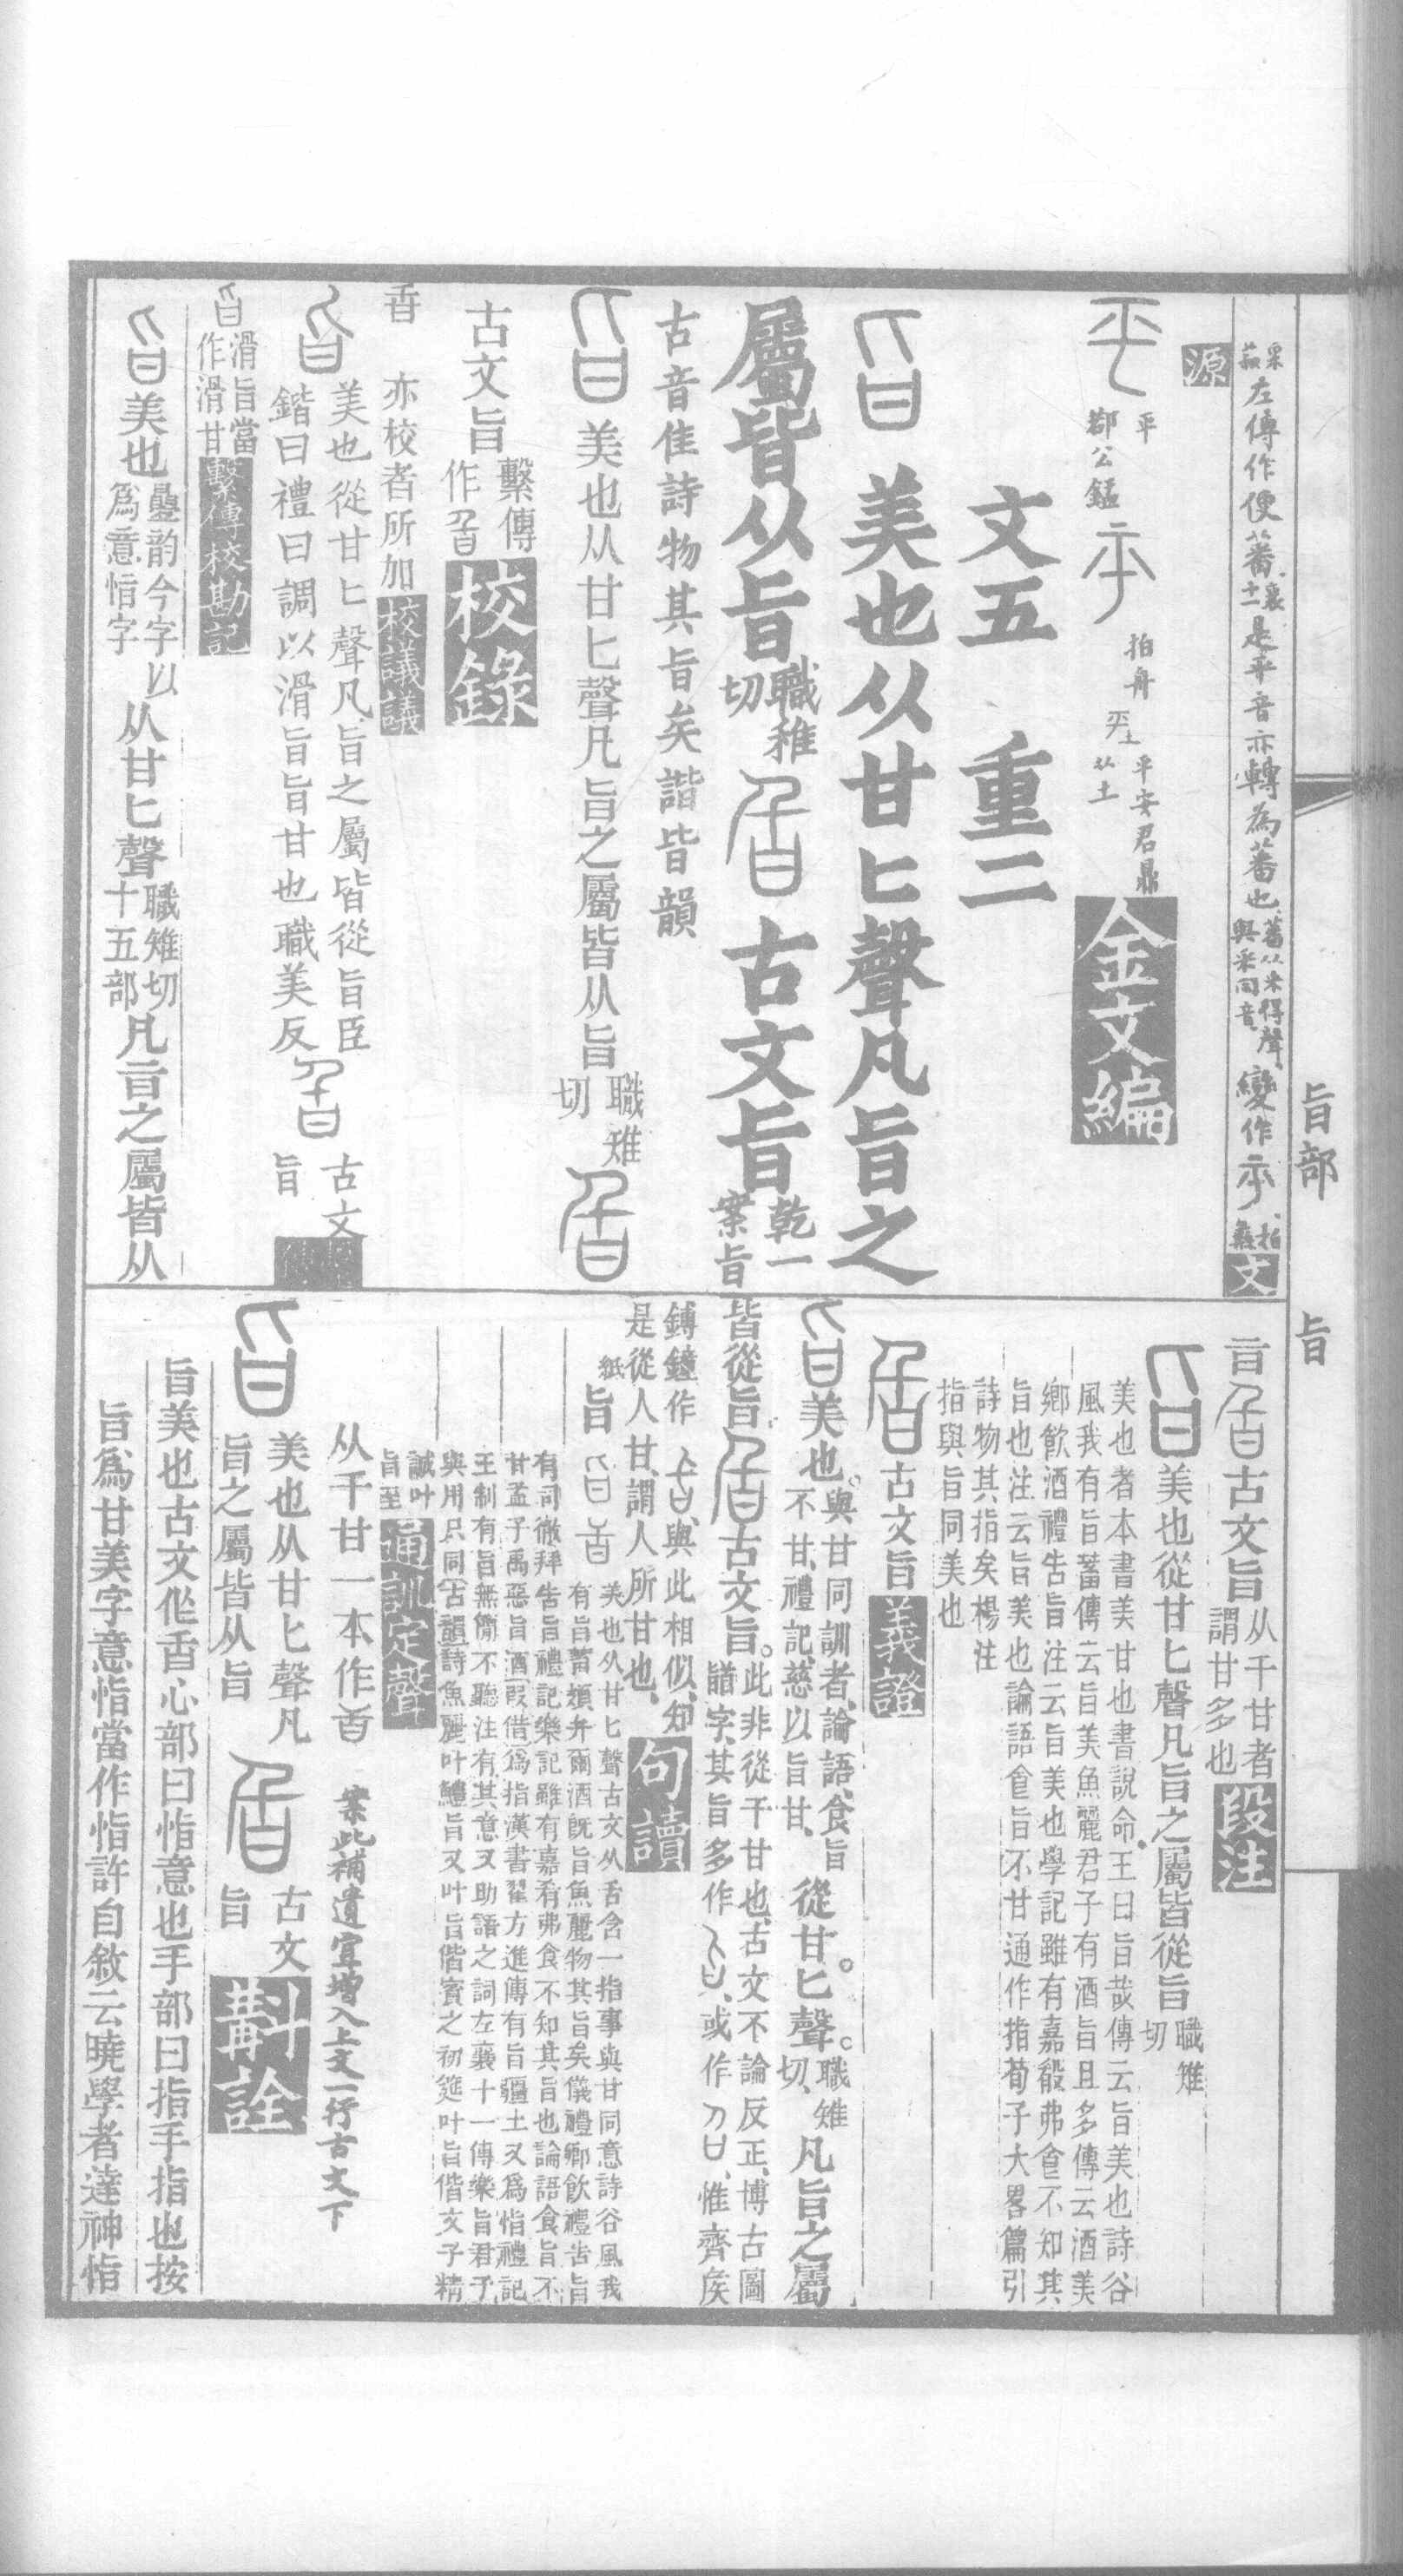 左傳作便蕃 襄十一 是平音亦轉為蕃也 蕃从釆得聲 與釆同音 變作 文
源
平 鄀公錳 拍舟 平安君鼎 从土 金文編
文五 重二
美也从甘匕聲凡旨之
屬皆从旨 職稚切 古文旨 乾一案旨
古音隹詩物其旨矣諧皆韻
美也从甘匕聲凡旨之屬皆从旨 職雉切
古文旨 繫傳作 校錄
亦校者所加 校議議
美也從甘匕聲凡旨之屬皆從旨臣
鍇曰禮曰調以滑旨旨甘也職美反 古文旨
滑旨當作滑甘 繫傳校勘記
美也 疊韵今字以為意恉字 从甘匕聲 職雉切十五部 凡旨之屬皆从
旨 古文旨 从千甘者謂甘多也 段注
美也從甘匕聲凡旨之屬皆從旨 職雉切
美也者本書美甘也書說命王曰旨哉傳云旨美也詩谷
風我有旨蓄傳云旨美魚麗君子有酒旨且多傳云酒美
鄉飲酒禮告旨注云旨美也學記雖有嘉殽弗食不知其
旨也注云旨美也論語食旨不甘通作指荀子大畧篇引
詩物其指矣楊注
指與旨同美也
古文旨 義證
美也。與甘同訓者、論語、食旨不甘、禮記、慈以旨甘、 從甘。匕聲。 職雉切、 凡旨之屬
皆從旨。 古文旨。 此非從千甘也、古文不論反正、博古圖䛑字、其旨多作 、或作 、惟齊矦
鎛鐘作 、與此相似、知
是從人甘、謂人所甘也、 句讀
紙 旨 美也从甘匕聲古文从舌含一指事與甘同意詩谷風我
有旨蓄頍弁爾酒旣旨魚麗物其旨矣儀禮鄉飲禮告旨
有司徹拜告旨禮記樂記雖有嘉肴弗食不知其旨也論語食旨不
甘孟子禹惡旨酒 叚借 爲指漢書翟方進傳有旨疆土又爲恉禮記
王制有旨無簡不聽注有其意又助語之詞左襄十一傳樂旨君子
與用只同 古韻 詩魚麗叶鱧旨又叶旨偕賓之初筵叶旨偕文子精
誠叶旨至 通訓定聲
从千甘一本作𣅌 案此補遺宜增入上文一行古文下
美也从甘匕聲凡旨之屬皆从旨 古文旨 斠詮
旨美也古文作舌心部曰恉意也手部曰指手指也按
旨爲甘美字意恉當作恉許自敘云曉學者達神恉
旨部 旨